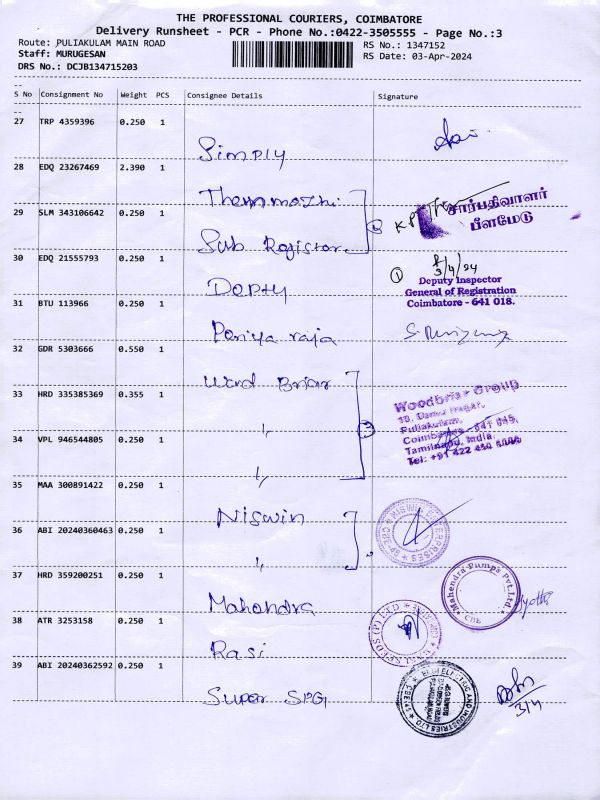 THE PROFESSIONAL COURIERS, COIMBATORE
Delivery Runsheet - PCR - Phone No.:0422-3505555 - Page No.:3
Route: PULIAKULAM MAIN ROAD
RS No.: 1347152
Staff: MURUGESAN
RS Date: 03-Apr-2024
DRS No.: DCJB134715203
S No Consignment No Weight PCS Consignee Details Signature
27 TRP 4359396 0.250 1
Simply
28 EDQ 23267469 2.390 1
Thenmozhi
சார்பதிவாளர்
பீளமேடு
29 SLM 343106642 0.250 1
Sub Registar
30 EDQ 21555793 0.250 1
3/4/24
Depty
Deputy Inspector
General of Registration
Coimbatore - 641 018.
31 BTU 113966 0.250 1
Periya raja
32 GDR 5303666 0.550 1
Word Briar
33 HRD 335385369 0.355 1
Woodbriar Group
Puliakulam,
Coimbatore - 641 045,
Tamilnadu, India.
34 VPL 946544805 0.250 1
35 MAA 300891422 0.250 1
Niswin
36 ABI 20240360463 0.250 1
37 HRD 359200251 0.250 1
Mahendra
Mahendra Pumps Pvt.Ltd.
CBE
38 ATR 3253158 0.250 1
Rasi
39 ABI 20240362592 0.250 1
Super SPG
3/4